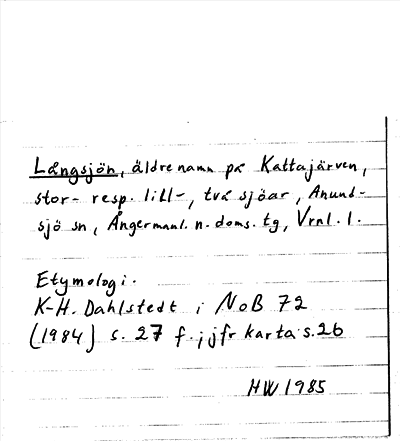 Långsjön, äldre namn på Kattajärven,
stor- resp. lill-, två sjöar, Anund-
sjö sn, Ångermanl. n. doms. tg, Vrnl. l.
Etymologi.
K-H. Dahlstedt i NoB 72
(1984) s. 27 f.; jfr karta s. 26
HW 1985